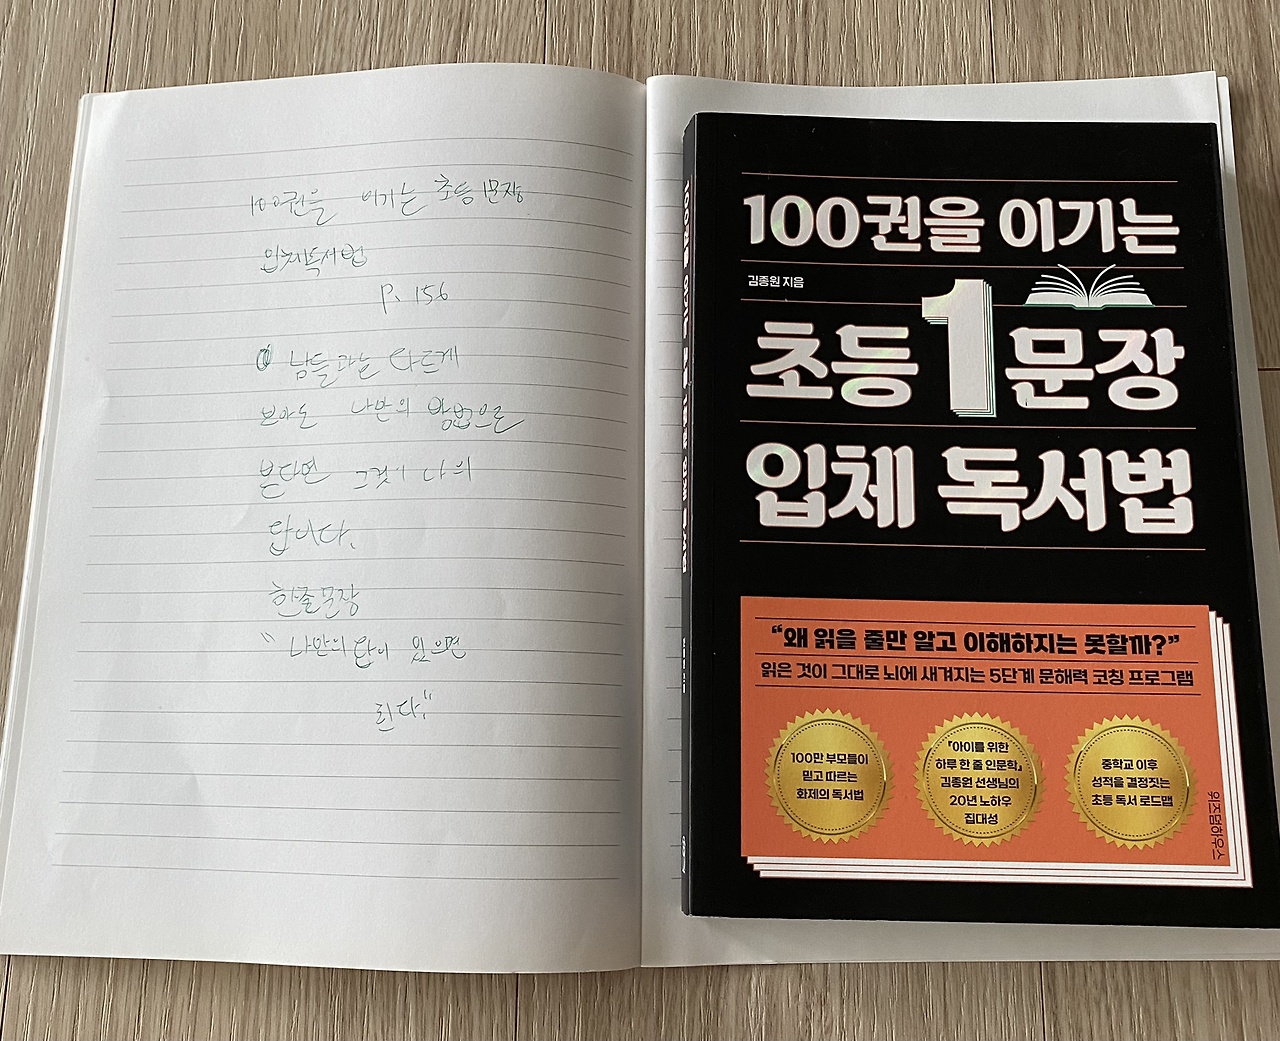 100권을 이기는 초등 1문장
입체독서법
p. 156
남들과는 다르게
보아도 나만의 방법으로
본다면 그것이 나의
답이다.
한줄문장
"나만의 답이 있으면
된다."
100권을 이기는
김종원 지음
초등 1 문장
입체 독서법
“왜 읽을 줄만 알고 이해하지는 못할까?”
읽은 것이 그대로 뇌에 새겨지는 5단계 문해력 코칭 프로그램
100만 부모들이
믿고 따르는
화제의 독서법
『아이를 위한
하루 한 줄 인문학』
김종원 선생님의
20년 노하우
집대성
중학교 이후
성적을 결정짓는
초등 독서 로드맵
위즈덤하우스